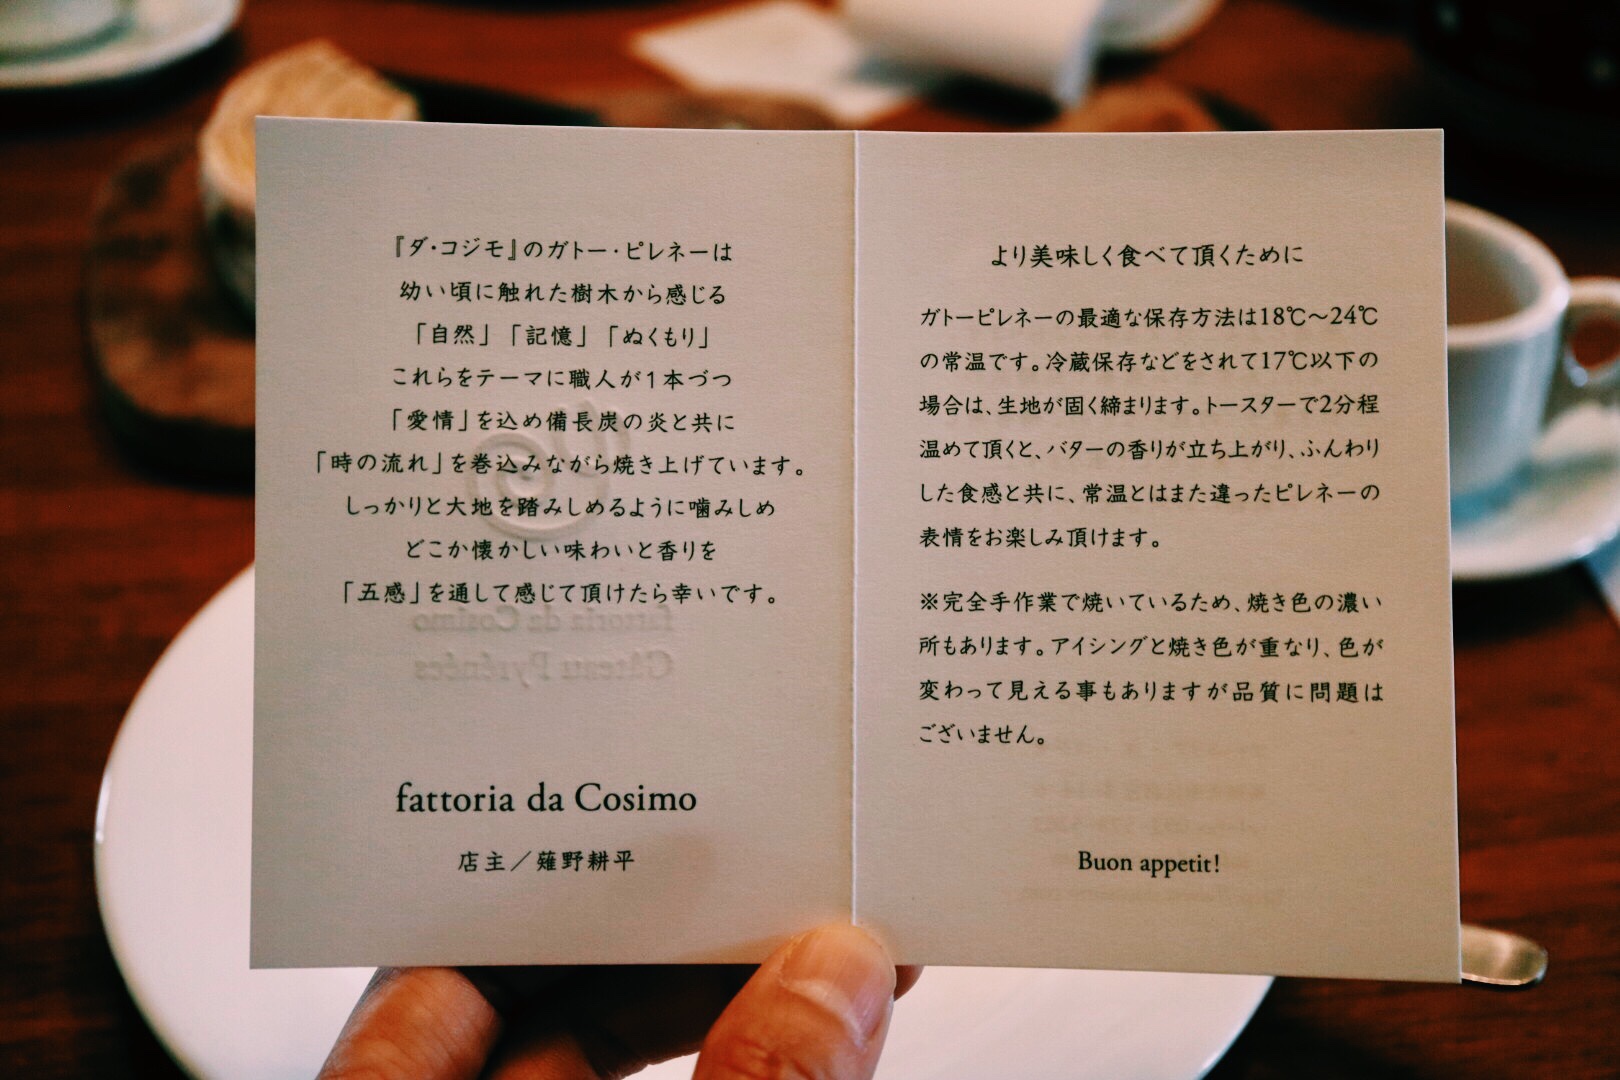 『ダ・コジモ』のガトー・ピレネーは
幼い頃に触れた樹木から感じる
「自然」「記憶」「ぬくもり」
これらをテーマに職人が1本づつ
「愛情」を込め備長炭の炎と共に
「時の流れ」を巻込みながら焼き上げています。
しっかりと大地を踏みしめるように噛みしめ
どこか懐かしい味わいと香りを
「五感」を通して感じて頂けたら幸いです。
fattoria da Cosimo
Gâteau Pyrénées
fattoria da Cosimo
店主／薤野耕平
より美味しく食べて頂くために
ガトーピレネーの最適な保存方法は18℃〜24℃
の常温です。冷蔵保存などをされて17℃以下の
場合は、生地が固く締まります。トースターで2分程
温めて頂くと、バターの香りが立ち上がり、ふんわり
した食感と共に、常温とはまた違ったピレネーの
表情をお楽しみ頂けます。
※完全手作業で焼いているため、焼き色の濃い
所もあります。アイシングと焼き色が重なり、色が
変わって見える事もありますが品質に問題は
ございません。
Buon appetit!